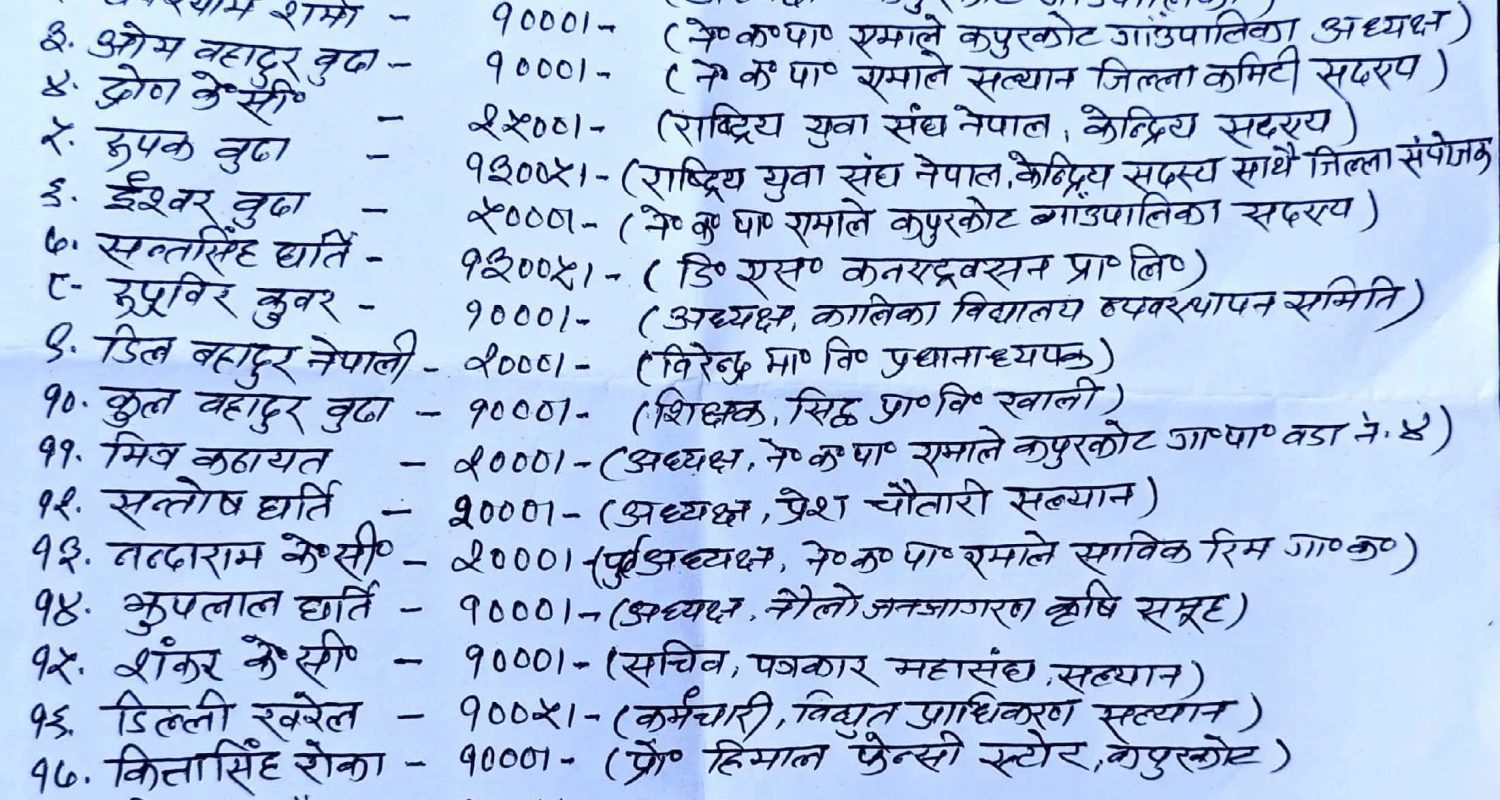 शर्मा - १०००।- (ने०क०पा० एमाले कपुरकोट गाउँपालिका अध्यक्ष)
३. ओम बहादुर बुढा - १०००।- (ने० क० पा० एमाले सल्यान जिल्ला कमिटी सदस्य)
४. द्रोण के०सी० - २५००।- (राष्ट्रिय युवा संघ नेपाल, केन्द्रिय सदस्य)
५. रुपक बुढा - १३००५।- (राष्ट्रिय युवा संघ नेपाल, केन्द्रिय सदस्य साथै जिल्ला संयोजक
६. ईश्वर बुढा - ५०००।- (ने० क० पा० एमाले कपुरकोट गाउँपालिका सदस्य)
७. सन्तसिंह घर्ति - १३००५।- (डि० एस० कनस्ट्रक्सन प्रा० लि०)
८- रुपविर कुवर - १०००।- (अध्यक्ष, कालिका विद्यालय व्यवस्थापन समिति)
९. डिल बहादुर नेपाली - २०००।- (विरेन्द्र मा० वि० प्रधानाध्यपक)
१०. कुल बहादुर बुढा - १०००।- (शिक्षक, सिद्ध प्रा० वि० खाली)
११. मित्र कठायत - २०००।- (अध्यक्ष, ने० क० पा० एमाले कपुरकोट गा०पा० वडा नं. ४)
१२. सन्तोष घर्ति - २०००।- (अध्यक्ष, प्रेश चौतारी सल्यान)
१३. नन्दाराम के०सी० - २०००।- (पुर्वअध्यक्ष, ने० क० पा० एमाले साविक रिम गा० क०)
१४. झुपलाल घर्ति - १०००।- (अध्यक्ष, नौलो जनजागरण कृषि समूह)
१५. शंकर के०सी० - १०००।- (सचिव, पत्रकार महासंघ, सल्यान)
१६. डिल्ली खरेल - १००५।- (कर्मचारी, विद्युत प्राधिकरण सल्यान)
१७. कित्तासिंह रोका - १०००।- (प्रो० हिमाल फेन्सी स्टोर, कपुरकोट)